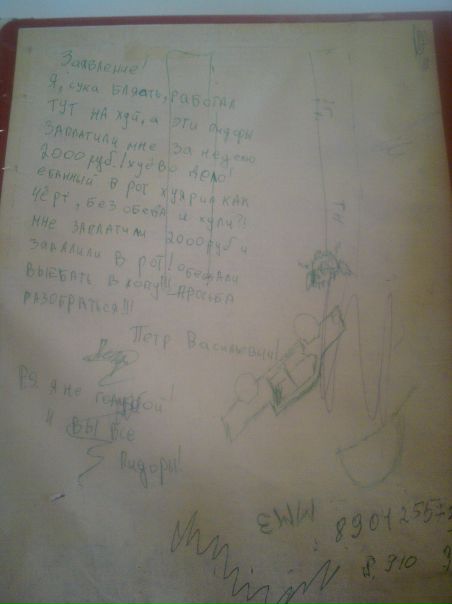 Заявление!
Я, сука блять, работал
тут на хуй, а эти пидоры
заплатили мне за неделю
2000 руб.! хуёво дело!
ебанный в рот хуярил как
чёрт, без обеда и хули?!
мне заплатили 2000 руб и
в рот! обещали
выебать в жопу!!! просьба
разобраться!!!
Петр Васильевич!
P.S. я не голубой!
и вы все
пидоры!
тн
8904255
8. 910